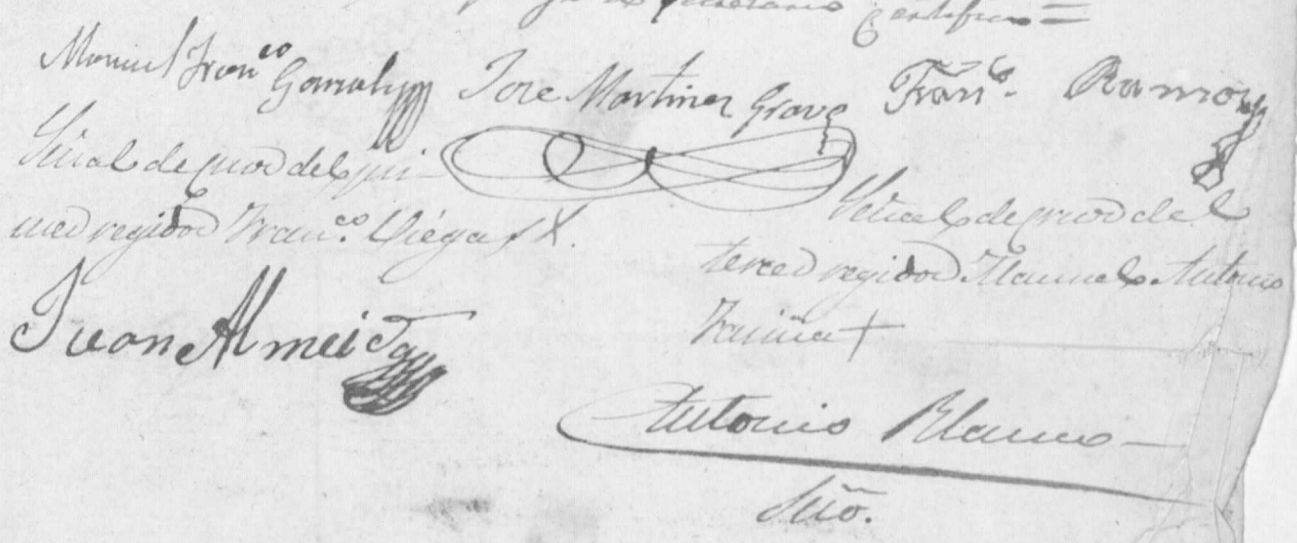 Secretario Certifico =
Manuel Franco Gonzalez Jose Martinez Grave Franco. Ramos
Señal de cruz del pri-
mer regidor Franco. Viegas X.
Señal de cruz del
tercer regidor Manuel Antonio
Fariña +
Juan Almeida
Antonio Blanco
Srio.